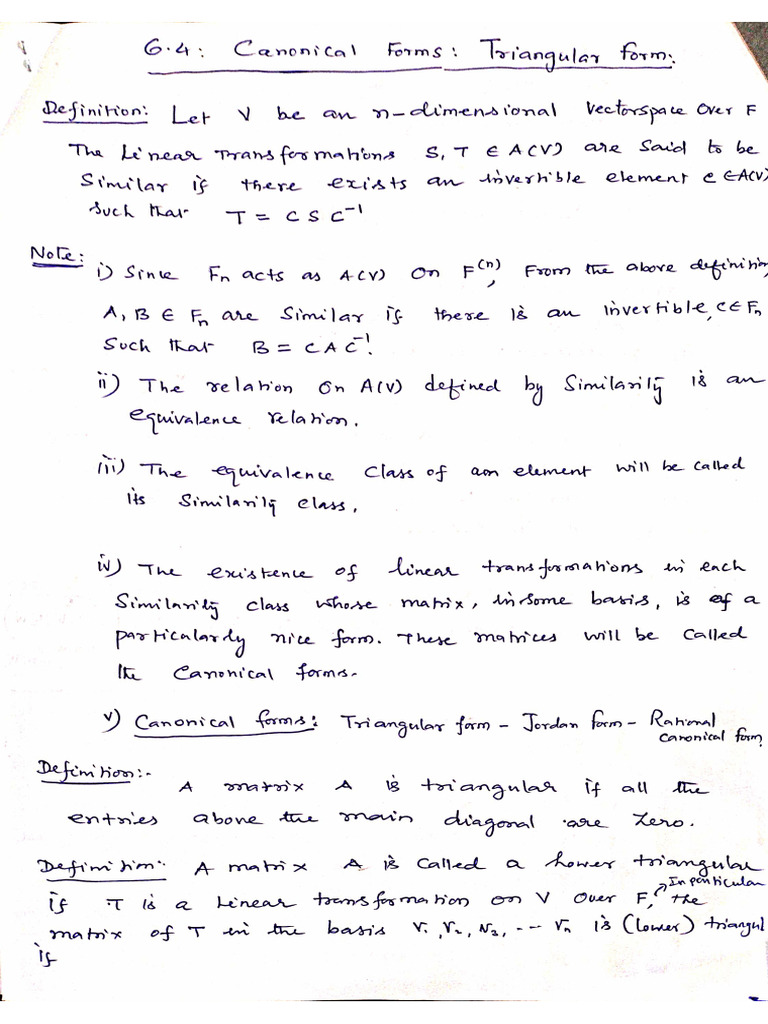 6.4: Canonical Forms: Triangular form:
Definition: Let V be an n-dimensional vectorspace over F
The Linear Transformations S, T ∈ A(V) are said to be
Similar if there exists an invertible element c ∈ A(V)
such that T = C S C⁻¹
Note: i) Since Fn acts as A(V) on F⁽ⁿ⁾, From the above definition
A, B ∈ Fn are similar if there is an invertible, C ∈ Fn
Such that B = C A C⁻¹.
ii) The relation on A(V) defined by Similarity is an
equivalence relation.
iii) The equivalence class of an element will be called
its Similarity class.
iv) The existence of linear transformations in each
Similarity class whose matrix, in some basis, is of a
particularly nice form. These matrices will be called
the Canonical forms.
v) Canonical forms: Triangular form - Jordan form - Rational
canonical form
Definition:- A matrix A is triangular if all the
entries above the main diagonal are zero.
Definition: A matrix A is called a lower triangular
if T is a Linear transformation on V over F, In particular the
matrix of T in the basis v₁, v₂, v₃, -- vn is (lower) triangul
if